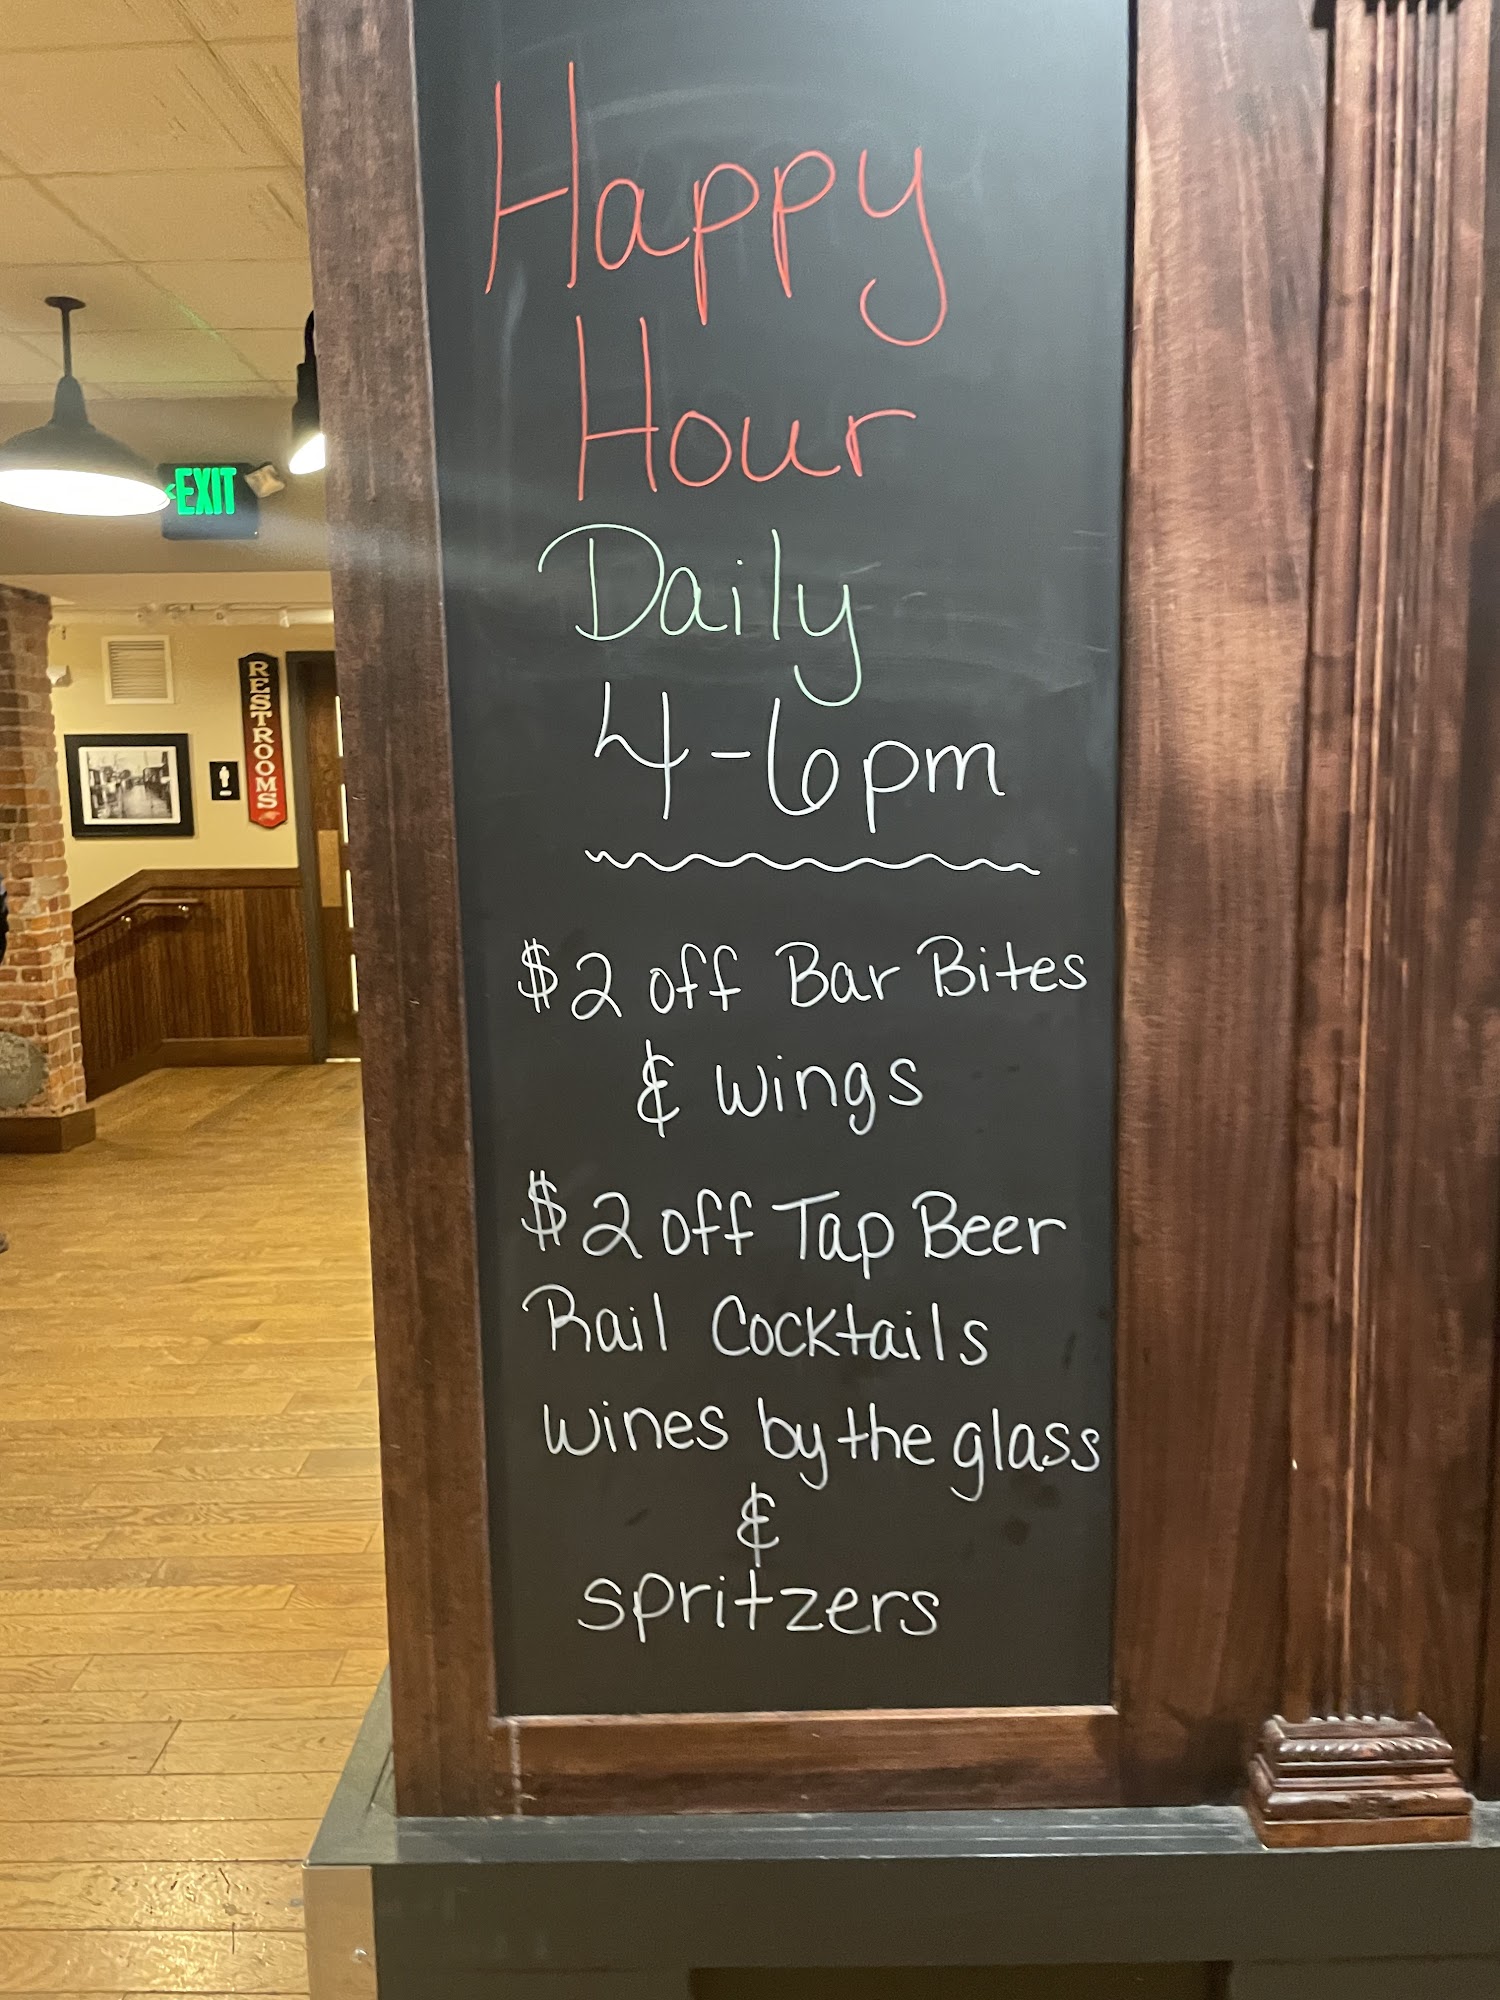 Happy
Hour
Daily
4-6pm
$2 off Bar Bites
& wings
$2 off Tap Beer
Rail Cocktails
wines by the glass
&
spritzers
EXIT
RESTROOMS